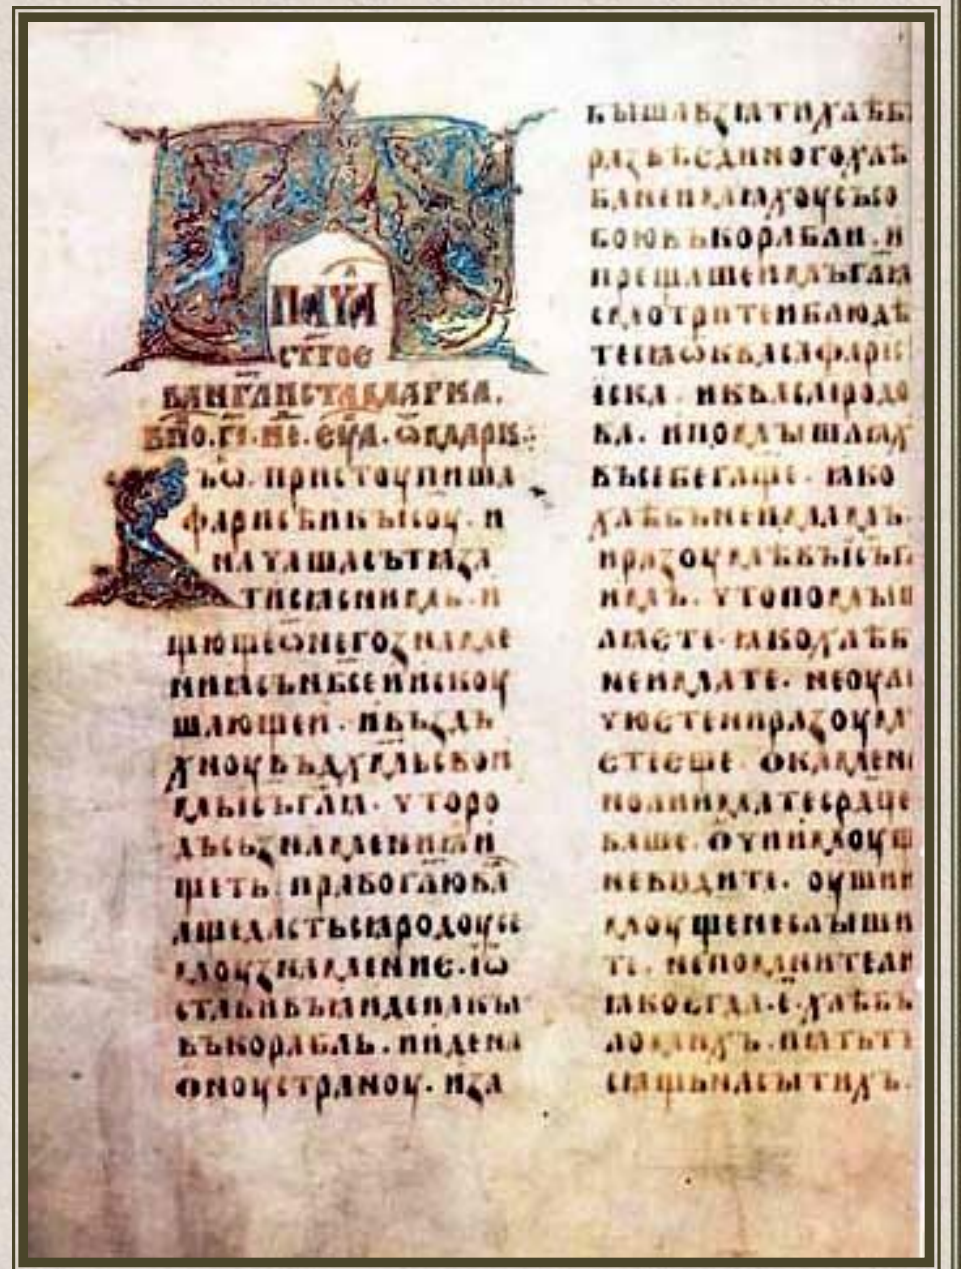 НАЧАⷧ
СТ҃ГОЕ
ВАНГ҃ЛИСТАМАРКА.
ВПО.Г҃І.НЕ.ЕУА.ѾМАРК:
Въѡ҃.пристоупиша
фарисѣикъісоу.и
начашасътѧза
тисѧснимь.и
щющеѿнегознаме
ниꙗсън҃бсеиискоу
шающеи.ивъздъ
хноувъд҃хмьсвои
мьисъгл҃а.Чторо
дъсьзнамениꙗи
щеть.правогл҃юва
ащедастьсѧродоусе
моузнамение.иѿ
ставивъꙗидепакы
въкорабль.иидена
оноустраноу.иза
бышавзѧтихлѣбъ
развѣединогохлѣ
банеимѧхоусъсо
боювъкорабли.и
прещашеимъгл҃ѧ
смотритеиблюдѣ
тесѧѿквасафарис
іска.икваса
ка.ипомышлѧх
въсебегл҃ще.ꙗко
хлѣбънеимамъ.
иразоумѣвъіс҃ъ
имъ.Чтопомыш
лѧсте.ꙗкохлѣб
неимате.неоули
чюстениразоум
стіеще.окамен
нолииматесрдце
ваше.очиимоущ
невидите.оуши
моущенеслыши
те.непомнители
ꙗкоегда.е҃.хлѣбъ
ломихъ.пѧтьт
сѧщьнасытихъ.